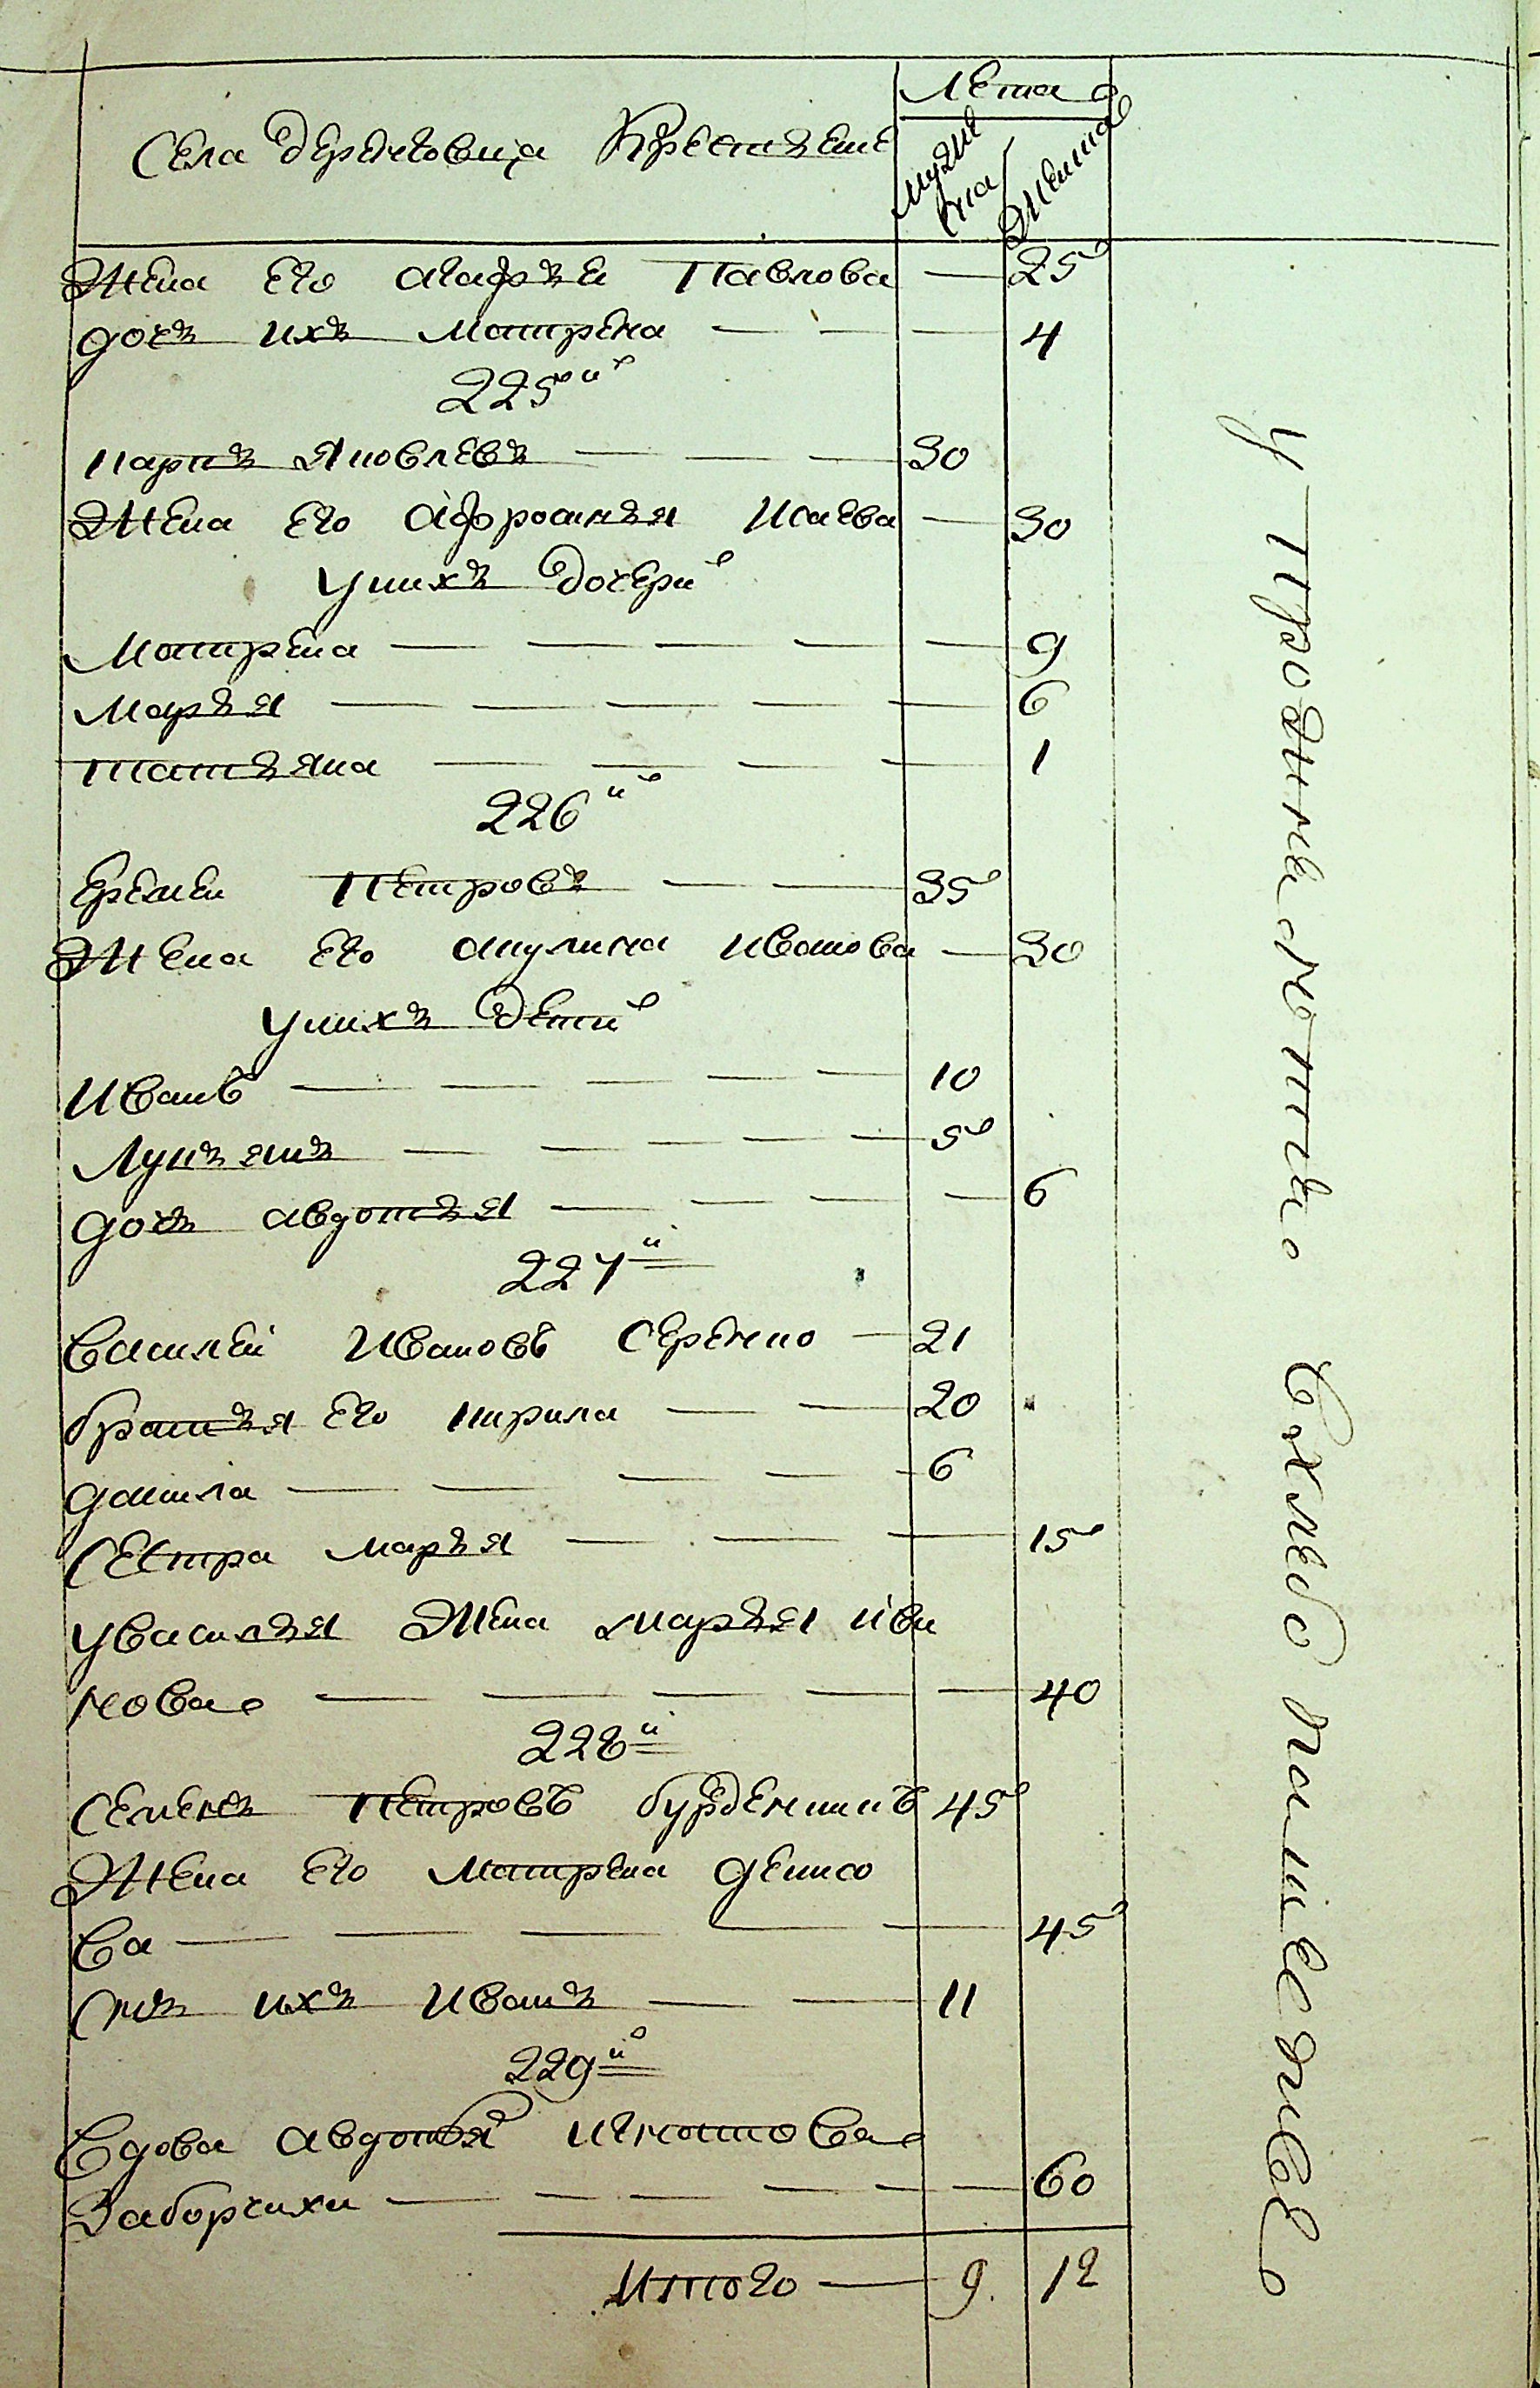 Лета
Села Дереновца Крестяне
мужеска
женска
Жена его агафъя Павлова — 25
дочь ихъ Матрена — — — 4
225й
карпъ Яковлевъ — — — 30
Жена его афросинья Исаева — 30
у нихъ дочери
Матрена — — — — — 9
Марья — — — — — 6
татьяна — — — — 1
226й
еремеи Петровъ — — 35
Жена его акулина иванова — 30
у нихъ дети
Иванъ — — — — — 10
Лукьянъ — — — — — 5
дочь авдотья — — — — 6
227й
василей Ивановъ Серенко — 21
братья его кирила — — 20
данила — — — — — 6
Сестра марья — — — 15
у василья Жена марья ива
нова — — — — — — 40
228й
Семенъ Петровъ 45
Жена его Матрена денисо
ва — — — — — 45
Снъ ихъ Иванъ — — 11
229й
вдова авдотья игнатова
Заборчиха — — — — — — 60
Итого — 9. 12
у